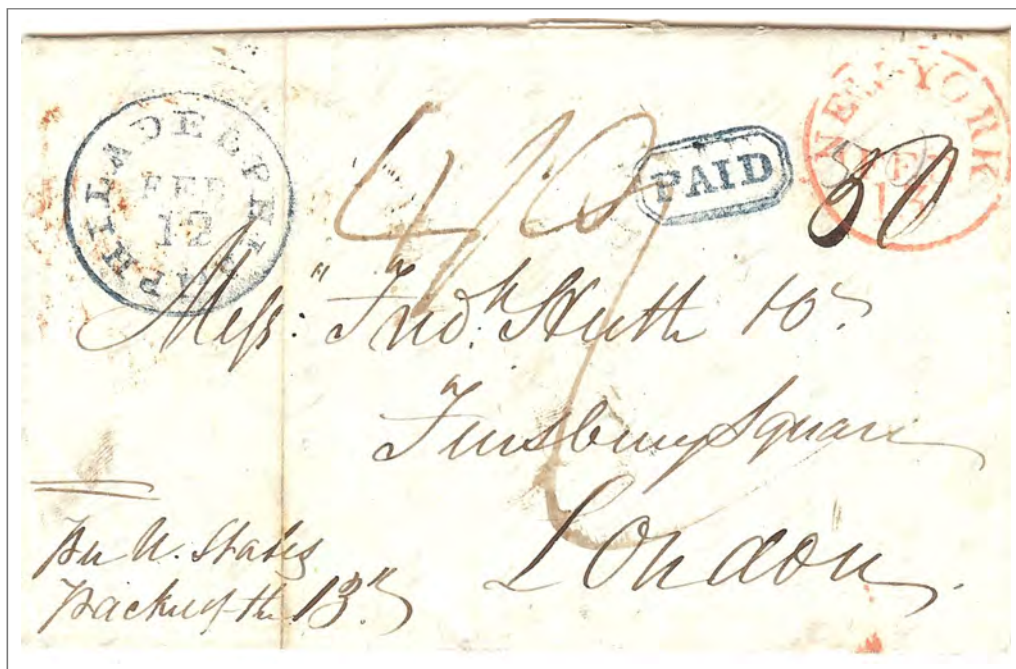 PHILADELPHIA
FEB
12
PAID
NEW-YORK
FEB
13
30
Mess:" Fred.k Huth Co.
Finsbury Square
London.
Per U. States
Packet of the 13th